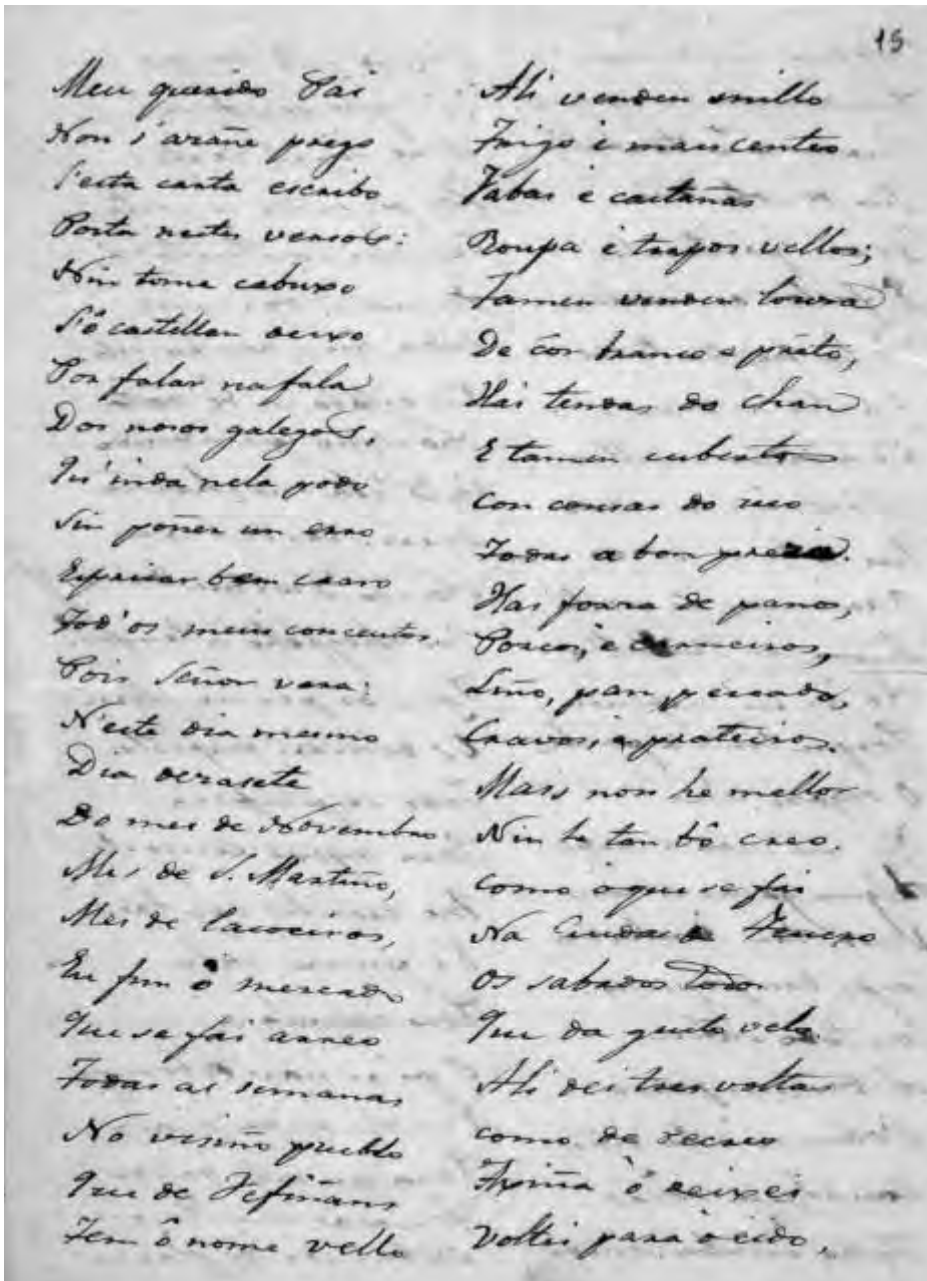 15
Meu querido Pai
Non s'arañe prego
S'esta carta escribo
Posta nestes versos:
Nin tome cabuxo
S'ô castellan deixo
Por falar na fala
Dos nosos galegos,
Qu'inda nela podo
Sin poñer un erro
Espricar bem craro
Tod'os meus concentos.
Pois Señor verá:
N'este dia mesmo
Dia dezasete
Do mes de Novembro
Mes de S. Martiño,
Mes de
Eu fun ô mercado
Que se fai arreo
Todas as semanas
No visiño pueblo
Que de Fefiñans
Tem ô nome vello
Ali venden millo
Trigo e mais centeo.
Fabas e castañas
Roupa e trapos vellos;
Tamen venden louza
De côr branco e prêto,
Hai tendas do chan
E tamen cubertos
Con cousas do
Todas a bon
Hai feira de panos,
Porcos, e carneiros,
Liño, pan, pescado,
Cravos, e prateiros.
Mais non he mellor
Nin he tan bô creo.
Como o que se fai
Na
Os sabados todos
Que da gusto velo
Ali dei tres voltas
como de recreo
Axiña ô deixei
Voltei para o eido,